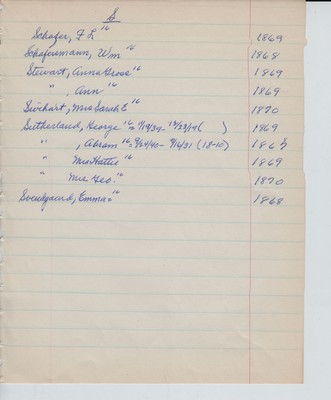 S
Schafer, F L 16 1869
Schafermann, Wm 16 1868
Stewart, Anna Gross 16 1869
" , Ann 16 1869
Mrs Sarah E 16 1870
Sutherland, George 16 = 7/19/34 - ( ) 1869
" , Abram 16 = 9/24/40 - 9/16/31 (18-10) 1868
" Mrs Hattie 16 1869
" Mrs Geo. 16 1870
Svendgaard, Emma 16 1868